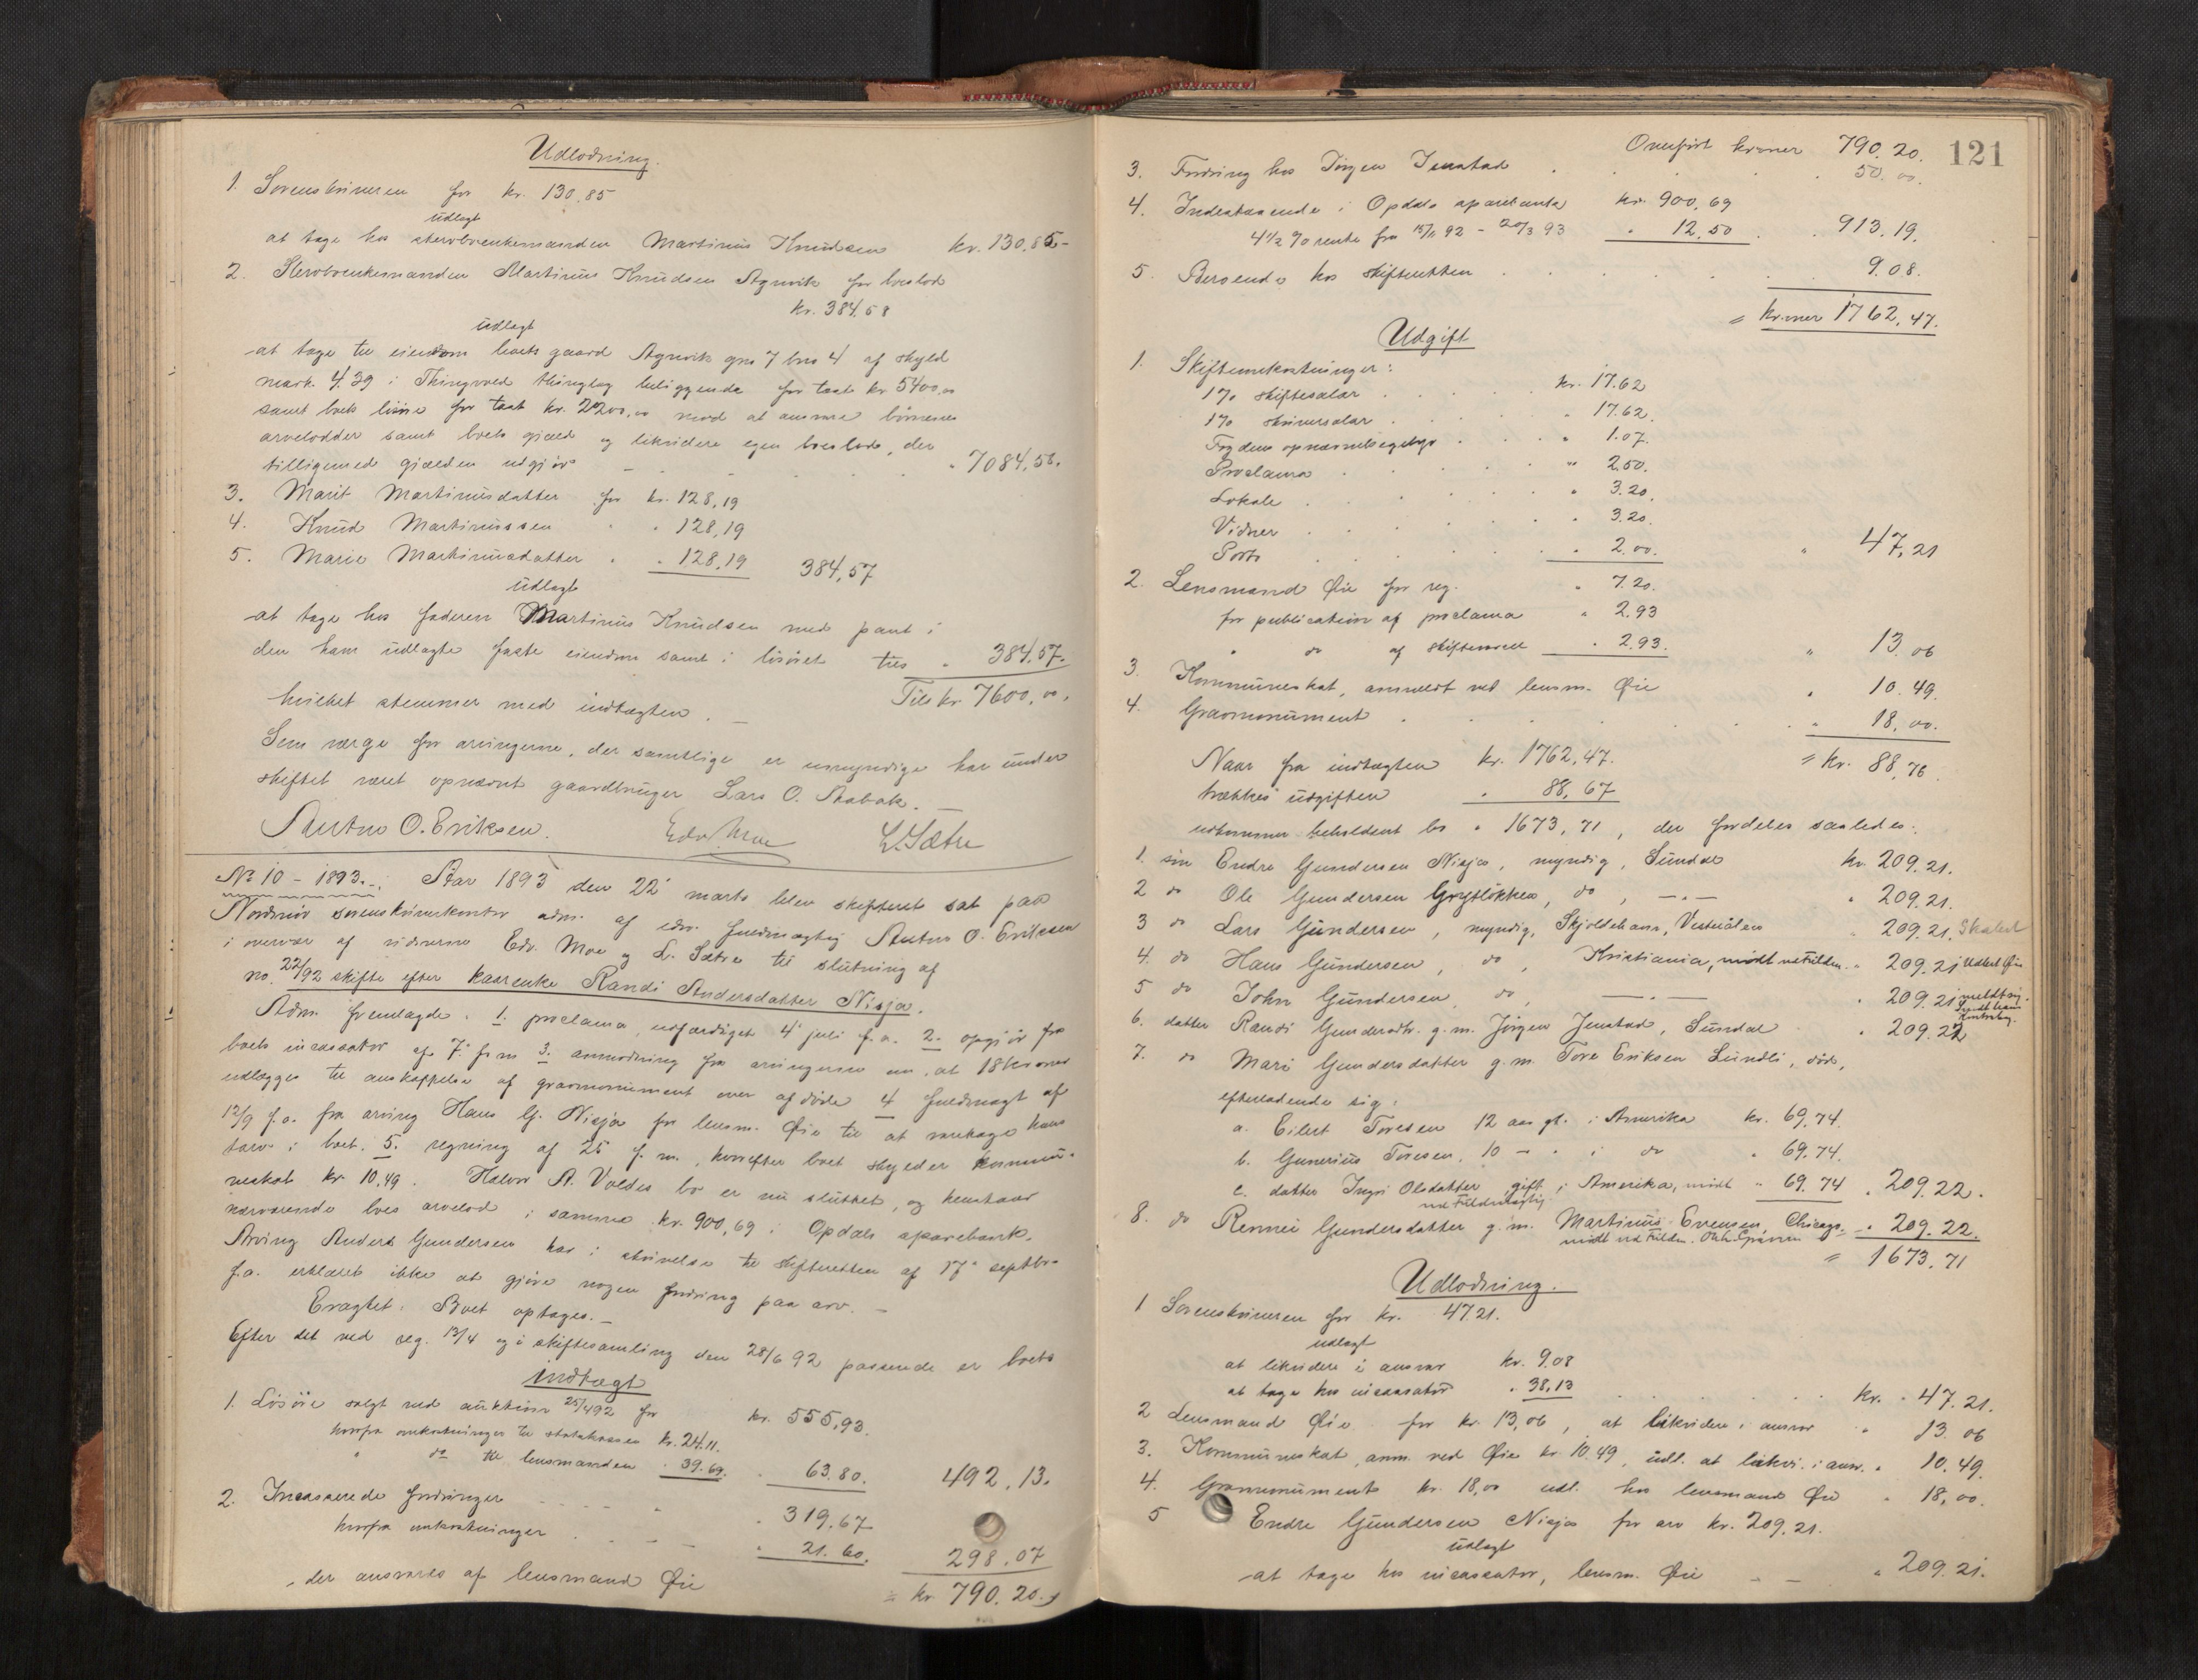 Udlodning.
1. Sorenskriveren for kr. 130,85
udlagt
at tage hos stervboenkemanden Martinus Knudsen kr. 130,85-
2. Stervboenkemanden Martinus Knudsen Agnvik for boeslod
kr. 384,58
udlagt
at tage til eiendom boets gaard Agnvik gno 7 bno 4 af skyld
mark. 4.39 i Thingvold thinglag beliggende for taxt kr 5400,00
samt boets løsøre for taxt kr. 2200,00 mod at ansvare børnenes
arvelodder samt boets gjæld og likvidere egen boeslod, der
tilligemed gjælden udgjør " 7084,58.
3. Marit Martinusdatter for kr. 128,19
4. Knud Martinussen " " 128,19
5. Marie Martinusdatter " " 128,19 384,57
udlagt
at tage hos faderen Martinus Knudsen med pant i
den ham udlagte faste eiendom samt i løsøret tils " 384,57.
hvilket stemmer med indtægten. – Tils kr 7600,00.
Som værge for arvingerne, der samtlige er umyndige har under
skiftet været opnævnt gaardbruger Lars O. Skabak. –
Anton O. Eriksen. Edv. Moe L. Sætre
No 10 – 1893. –: Aar 1893 den 22 marts blev skifteret sat paa
Nordmør sorenskriverkontor adm. af edsv. fuldmægtig Anton O. Eriksen
i overvær af vidnerne Edv. Moe og L. Sætre til slutning af
no. 22/92 skifte efter kaarenke Randi Andersdatter Nisja.
Adm. fremlagde: 1. proclama, udfærdiget 4 juli f.a. 2. opgjør fra
boets incassator af 7. f.m 3. anmodning fra arvingerne om, at 18 kroner
udlægges til anskaffelse af gravmonument over afdøde 4 fuldmagt af
12/9 f.a. fra arving Hans G. Nisja for lensm. Øie til at varetage hans
tarv i boet. 5. regning af 25 f.m., hvorefter boet skylder kommu-
neskat kr. 10.49. Halvor A. Voldes bo er nu sluttet, og henstaar
nærværende boes arvelod i samme kr. 900,69 i Opdals sparebank.
Arving Anders Gundersen har i skrivelse til skifteretten af 17 septbr.
f.a. erklæret ikke at gjøre nogen fordring paa arv. –
Eragtet: Boet optages. –
Efter det ved reg. 13/4 og i skiftesamling den 28/6 92 passerede er boets
indtægt
1. Løsøre solgt ved auktion 25/4 92 for kr. 555,93.
hvorfra omkostninger til statskassen kr. 24.11.
" do til lensmanden " 39.69. " 63.80. 492.13.
2. Incasserede fordringer " 319.67
hvorfra omkostninger " 21.60. 298.07
– der ansvares af lensmand Øie = kr 790.20.
121
Overført kroner 790.20.
3. Fordring hos Jørgen Jenstad 50.00.
4. Indestaaende i Opdals sparebank kr. 900,69
4½ % rente fra 15/1 92 – 20/3 93 " 12.50 913.19.
5. Beroende hos skifteretten 9.08.
= kroner 1762,47.
Udgift
1. Skifteomkostninger:
1% skiftesalær kr. 17.62
1% skriversalær " 17.62.
Fogdens opnævnelsegebyr " 1.07.
Proclama " 2.50.
Lokale " 3.20.
Vidner " 3.20.
Porto " 2.00. " 47,21
2. Lensmand Øie for reg. " 7.20.
for publication af proclama " 2.93
" do af skifteværdi " 2.93. " 13.06
3. Kommuneskat, anmeldt ved lensm. Øie " 10.49.
4. Gravmonument " 18,00.
= kr. 88,76.
Naar fra indtægten kr. 1762,47.
trækkes udgiften " 88,67
udkommer beholdent bo " 1673,71, der fordeles saaledes:
1. søn Endre Gundersen Nisja, myndig, Sundal kr. 209.21.
2 do Ole Gundersen Grytløkken, do, –"– " 209.21.
3 do Lars Gundersen, myndig, Skjoldehavn, Vesteraalen " 209.21.
4. do Hans Gundersen, do, Kristiania, mødt ved Fuldm. " 209.21 Udlert Øie
5 do John Gundersen, do, –"– " 209.21 meldt sig.
6. datter Randi Gundersdtr. g.m. Jørgen Jenstad, Sundal " 209.22
7. do Mari Gundersdatter g.m. Tore Eriksen Lundli, død,
efterladende sig:
a. Eilert Toresen 12 aar gl. i Amerika kr. 69,74.
b. Gunerius Toresen, 10 – " i do " 69.74.
c. datter Ingri Olsdatter gift, i Amerika, mødt " 69.74 " 209.22.
ved Fuldmægtig
8. do Rennei Gundersdatter g.m. Martinus Evensen, Chicago – " 209.22.
mødt ved Fuldm.
= 1673.71
Udlodning.
1 Sorenskriveren for kr. 47.21.
udlagt
at likvidere i ansvar kr. 9.08
at tage hos incassator " 38,13 kr. 47.21.
2 Lensmand Øie for kr. 13,06, at likvidere i ansvar " 13.06
3. Kommuneskat, anm. ved Øie kr 10.49, udl. at likvi. i answ. " 10.49.
4. Gravmonument kr. 18,00 udl. hos lensmand Øie " 18,00.
5 Endre Gundersen Nisja for arv kr. 209.21.
udlagt
at tage hos incassator, lensm. Øie – – " 209.21.